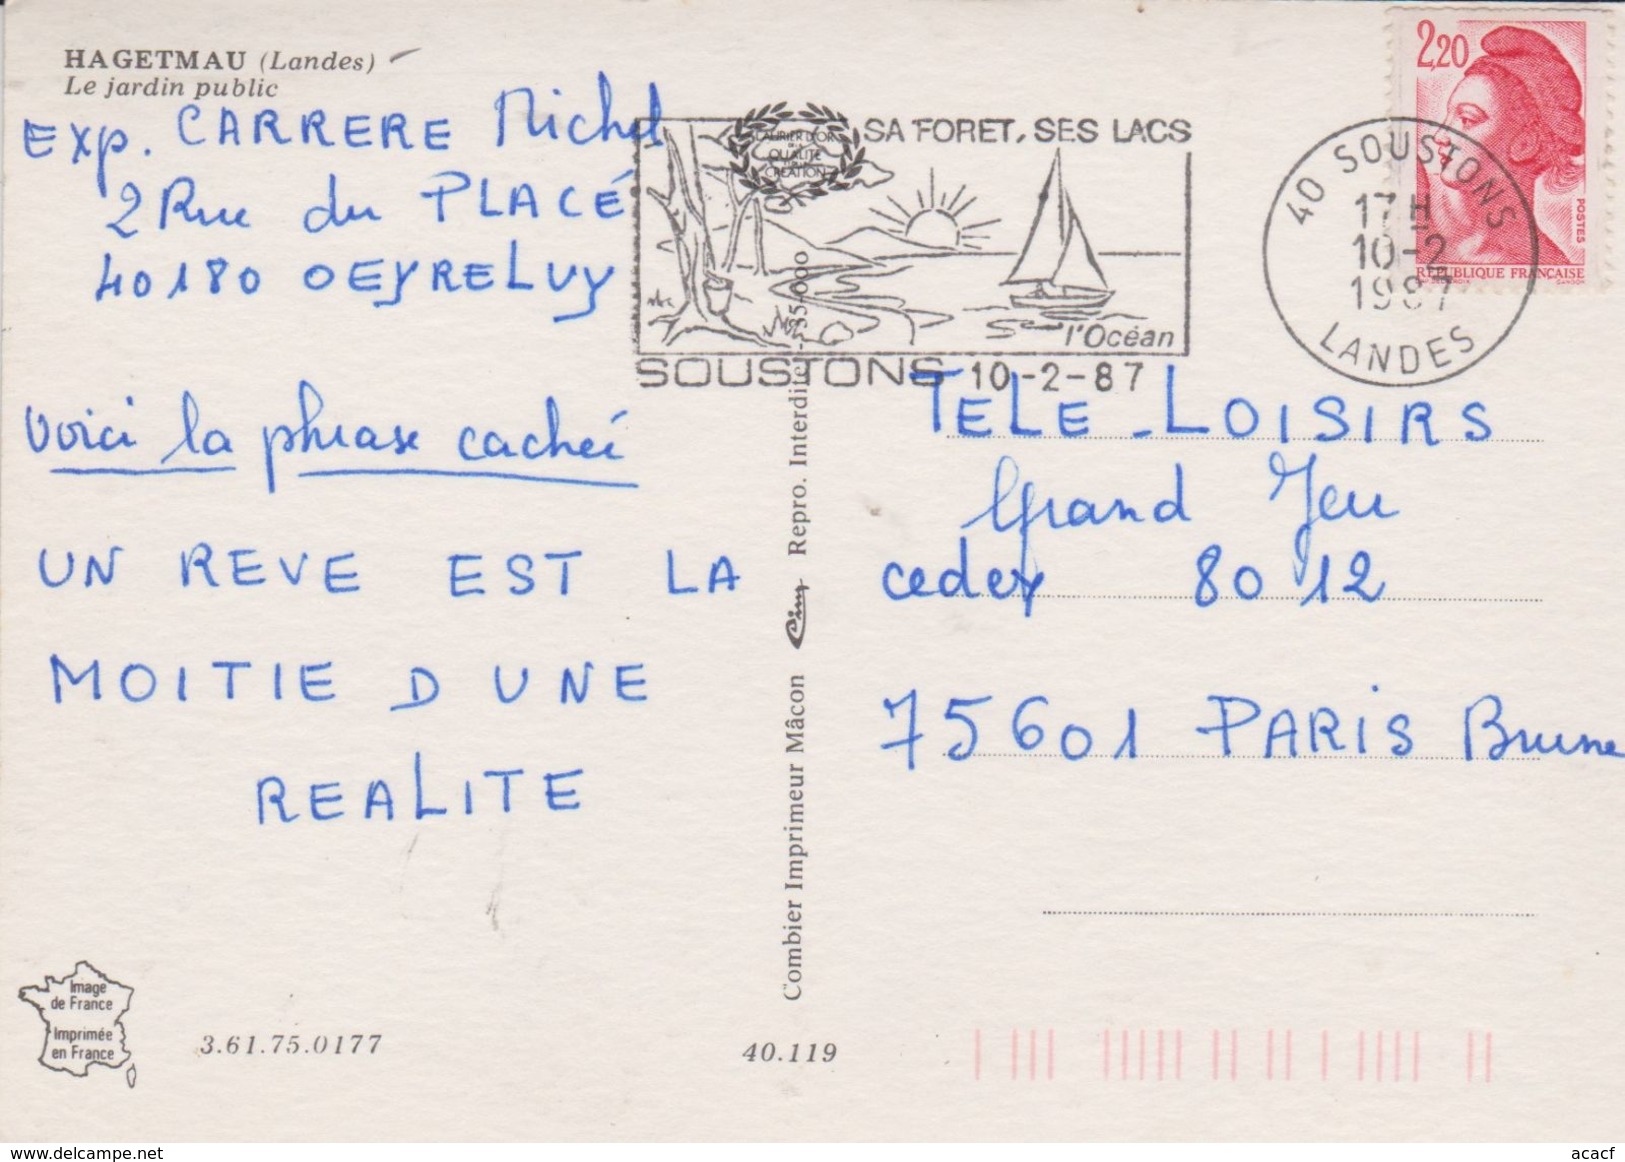 HAGETMAU (Landes)
Le jardin public
Exp. CARRERE Michel
2 Rue du PLACÉ
40180 OEYRELUY
Voici la phrase cachée
UN REVE EST LA
MOITIE D UNE
REALITE
Image
de France
Imprimée
en France
3.61.75.0177
40.119
Combier Imprimeur Mâcon Cim Repro. Interdite - 35.000
LAURIER D'OR
DE LA
QUALITE
CREATION
SA FORET, SES LACS
l'Océan
SOUSTONS 10-2-87
40 SOUSTONS
17H
10-2
1987
LANDES
2,20
POSTES
REPUBLIQUE FRANÇAISE
TELE-LOISIRS
Grand Jeu
cedex 8012
75601 PARIS Brune
delcampe.net
acacf